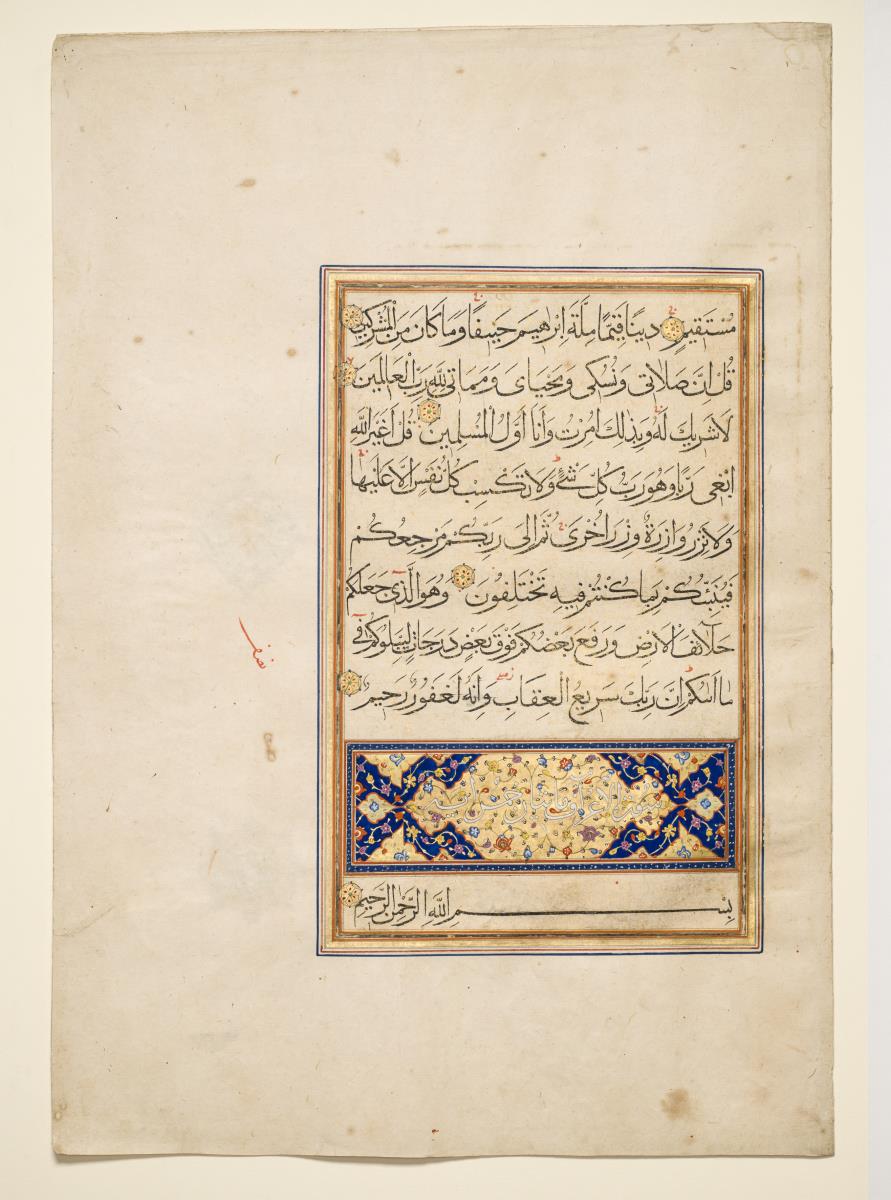 مُسْتَقِيمٍ دِينًا قِيَمًا مِلَّةَ اِبْرٰهِيمَ حَنِيفًا وَمَا كَانَ مِنَ الْمُشْرِكِينَ
قُلْ اِنَّ صَلَاتِى وَنُسُكِى وَمَحْيَاىَ وَمَمَاتِى لِلّٰهِ رَبِّ الْعَالَمِينَ
لَا شَرِيكَ لَهُ وَبِذٰلِكَ اُمِرْتُ وَاَنَا اَوَّلُ الْمُسْلِمِينَ قُلْ اَغَيْرَ اللّٰهِ
اَبْغِى رَبًّا وَهُوَ رَبُّ كُلِّ شَىْءٍ وَلَا تَكْسِبُ كُلُّ نَفْسٍ اِلَّا عَلَيْهَا
وَلَا تَزِرُ وَازِرَةٌ وِزْرَ اُخْرٰى ثُمَّ اِلٰى رَبِّكُمْ مَرْجِعُكُمْ
فَيُنَبِّئُكُمْ بِمَا كُنْتُمْ فِيهِ تَخْتَلِفُونَ وَهُوَ الَّذِى جَعَلَكُمْ
خَلَائِفَ الْاَرْضِ وَرَفَعَ بَعْضَكُمْ فَوْقَ بَعْضٍ دَرَجَاتٍ لِيَبْلُوَكُمْ فِى
مَا اٰتٰيكُمْ اِنَّ رَبَّكَ سَرِيعُ الْعِقَابِ وَاِنَّهُ لَغَفُورٌ رَحِيمٌ
سورة الاعراف مايتان وخمس اية
بِسْمِ اللّٰهِ الرَّحْمٰنِ الرَّحِيمِ
نصف